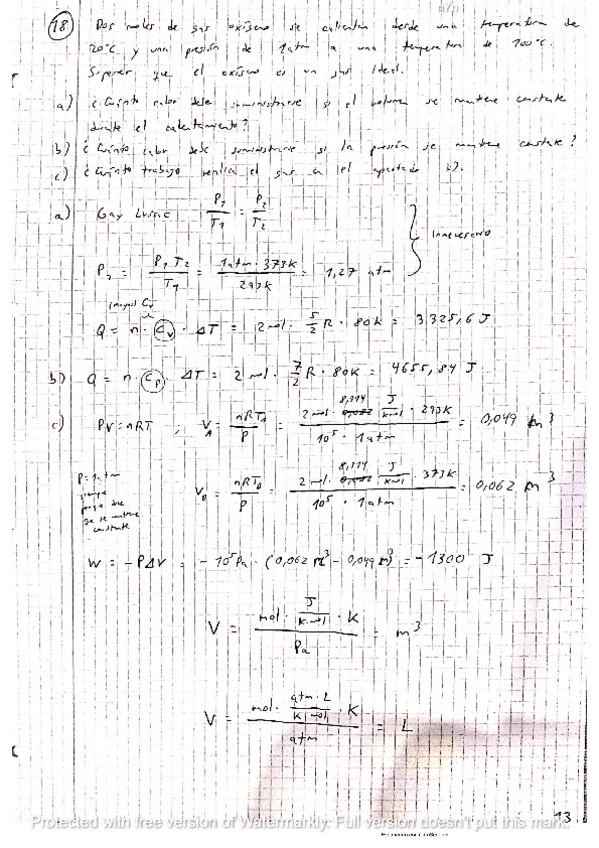 18) Dos moles de gas oxígeno se calientan desde una temperatura de
20°C y una presión de 1 atm a una temperatura de 100°C.
Suponer que el oxígeno es un gas ideal.
a) ¿Cuánto calor debe suministrarse si el volumen se mantiene constante
durante el calentamiento?
b) ¿Cuánto calor debe suministrarse si la presión se mantiene constante?
c) ¿Cuánto trabajo realiza el gas en el apartado b).
a) Gay Lussac P1/T1 = P2/T2
P2 = P1 T2/T1 = 1 atm · 373K/293K = 1,27 atm } Innecesario
Q = n · Cv · ΔT = 2 mol · 5/2 R · 80K = 3325,6 J
b) Q = n · Cp · ΔT = 2 mol · 7/2 R · 80K = 4655,84 J
c) PV = nRT ; VA = nRTA/P = 2 mol · 8,314 J/K·mol · 293K/10^5 · 1 atm = 0,049 m³
P = 1 atm
siempre
porque
se mantiene
constante
VB = nRTB/P = 2 mol · 8,314 J/K·mol · 373K/10^5 · 1 atm = 0,062 m³
W = -PΔV = -10^5 Pa · (0,062 m³ - 0,049 m³) = -1300 J
V = mol · J/K·mol · K/Pa = m³
V = mol · atm·L/K·mol · K/atm = L
13
Protected with free version of Watermarkly. Full version doesn't put this mark.